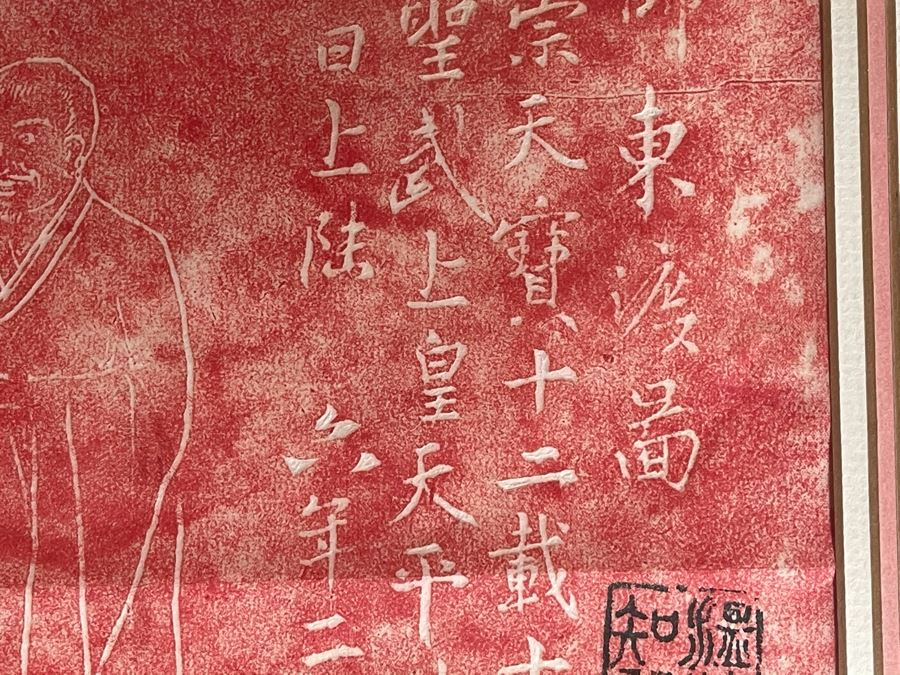 師東渡圖
宗天寶十二載十
聖武上皇天平
日上陸 六年二
知